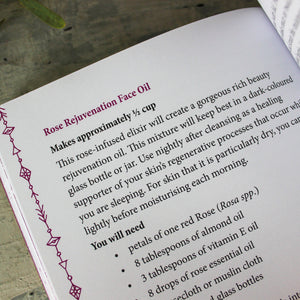 Rose Rejuvenation Face Oil
Makes approximately ½ cup
This rose-infused elixir will create a gorgeous rich beauty
rejuvenation oil. This mixture will keep best in a dark-coloured
glass bottle or jar. Use nightly after cleansing as a healing
supporter of your skin's regenerative processes that occur
you are sleeping. For skin that it is particularly dry, you can
lightly before moisturising each morning.
You will need
• petals of one red Rose (Rosa spp.)
• 8 tablespoons of almond oil
• 3 tablespoons of vitamin E oil
• 8 drops of rose essential oil
cloth or muslin cloth
glass bottles